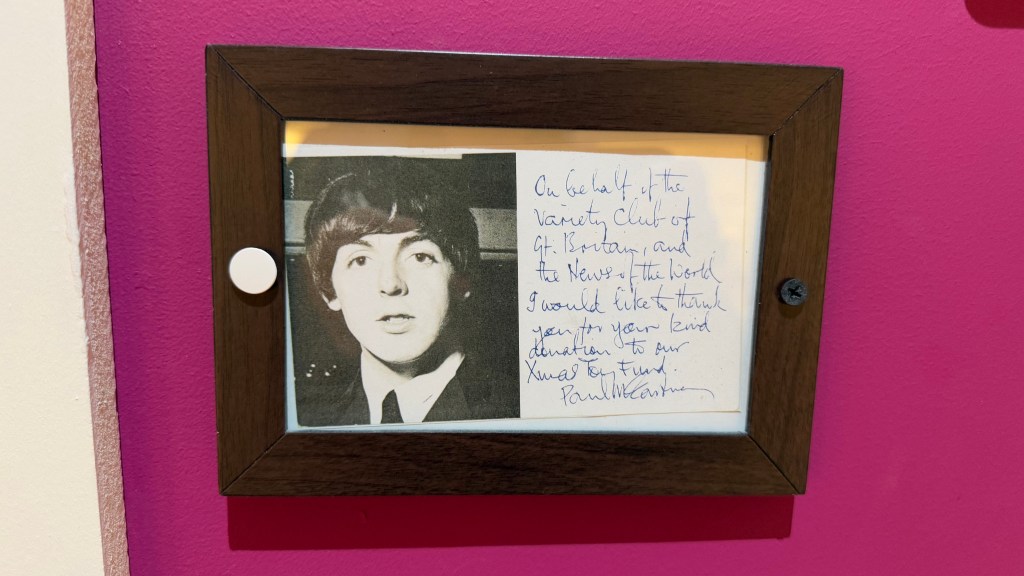 On behalf of the
Variety Club of
Gt. Britain, and
the News of the World
I would like to thank
you for your kind
donation to our
Xmas Toy Fund.
Paul McCartney